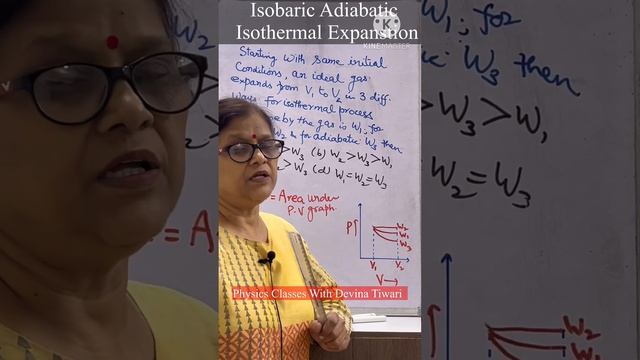 Isobaric Adiabatic
Isothermal Expansion
KINEMASTER
Starting with same initial
Conditions, an ideal gas
expands from V1 to V2 in 3 diff.
ways for isothermal process
by the gas is W1, for
W2 & for adiabatic W3 then
> W3 (b) W2 > W3 > W1
> W3 (d) W1 = W2 = W3
= Area under
P.V graph
P↑
W2
W1
W3
V1 V2
V→
Physics Classes With Devina Tiwari
W2
= A
W1, for
W3 then
> W3 > W1
W2 = W3
W2
W